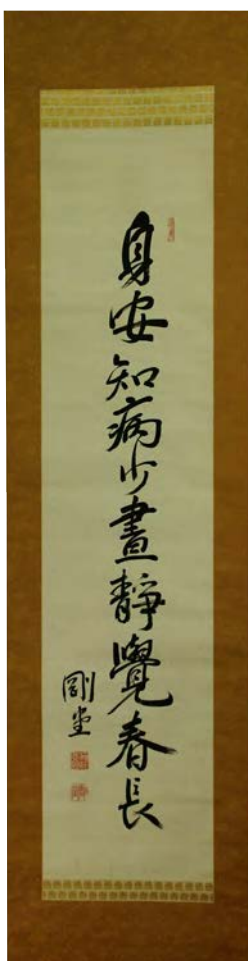 身安知病少晝靜覺春長
剛堂